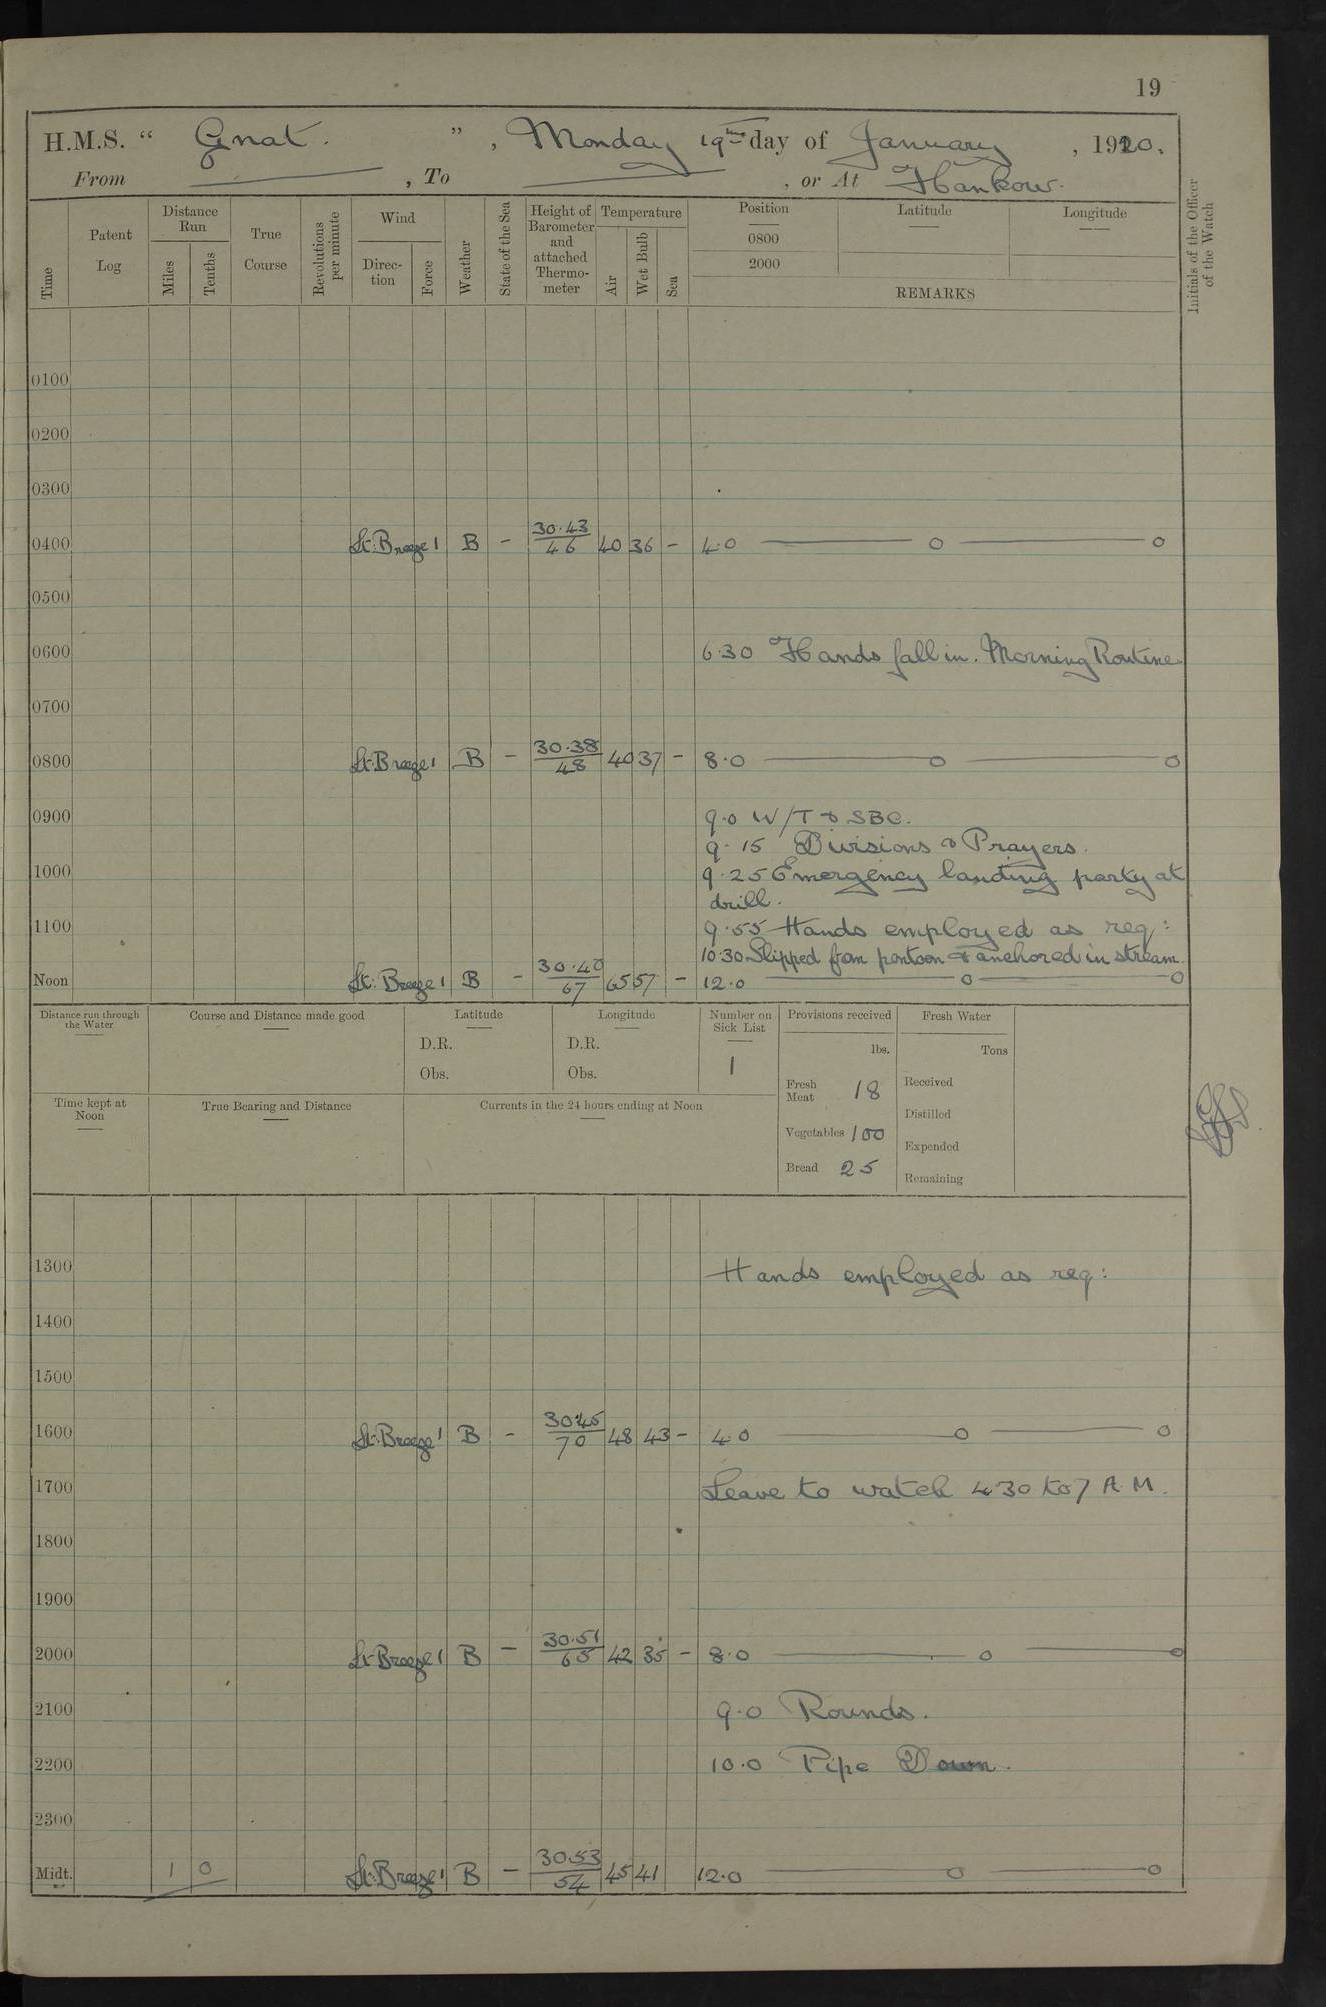 19
H.M.S. " Gnat. ", Monday 19th day of January, 1920.
From ———, To ———, or At Hankow.
Time
Patent Log
Distance Run
Miles
Tenths
True Course
Revolutions per minute
Wind
Direc-tion
Force
Weather
State of the Sea
Height of Barometer and attached Thermo-meter
Temperature
Air
Wet Bulb
Sea
Position
0800
2000
Latitude
Longitude
REMARKS
Initials of the Officer of the Watch
0100
0200
0300
0400 Lt: Breeze 1 B - 30.43/46 40 36 - 4.0 —— o —— o
0500
0600 6.30 Hands fall in. Morning Routine
0700
0800 Lt Breeze 1 B - 30.38/48 40 37 - 8.0 —— o —— o
0900 9.0 W/T & SBC.
9.15 Divisions & Prayers.
1000 9.25 Emergency landing party at
drill.
1100 9.55 Hands employed as req:
10.30 Slipped from pontoon & anchored in stream.
Noon Lt: Breeze 1 B - 30.40/67 65 57 - 12.0 —— o —— o
Distance run through the Water
Course and Distance made good
Latitude
D.R.
Obs.
Longitude
D.R.
Obs.
Number on Sick List
1
Provisions received
lbs.
Fresh Meat 18
Vegetables 100
Bread 25
Fresh Water
Tons
Received
Distilled
Expended
Remaining
Time kept at Noon
True Bearing and Distance
Currents in the 24 hours ending at Noon
1300 Hands employed as req:
1400
1500
1600 Lt: Breeze 1 B - 30.45/70 48 43 - 4.0 —— o —— o
1700 Leave to watch 4.30 to 7 A.M.
1800
1900
2000 Lt Breeze 1 B - 30.51/65 42 35 - 8.0 —— o —— o
2100 9.0 Rounds.
2200 10.0 Pipe Down.
2300
Midt. 1 0 Lt: Breeze 1 B - 30.53/54 45 41 12.0 —— o —— o